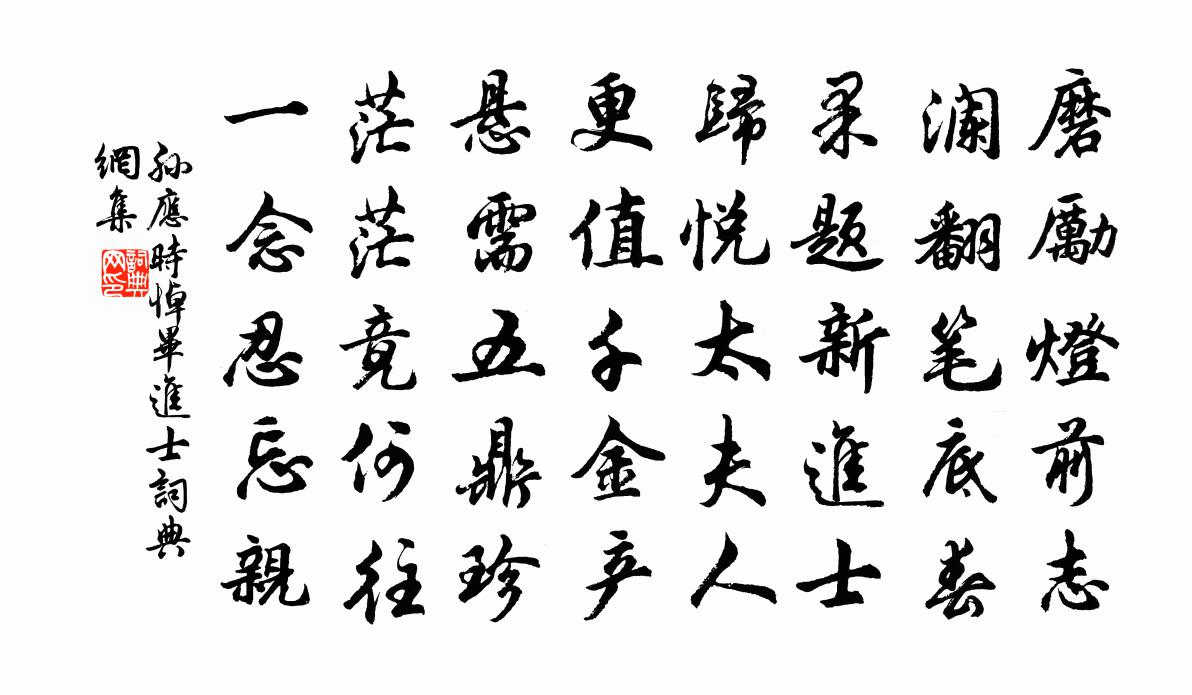 磨勵燈前志
澜翻笔底春
果题新進士
歸悦太夫人
更值千金产
悬需五鼎珍
茫茫竟何往
一念忍忘親
孙應時悼畢進士詞典
網集
詞典
网印